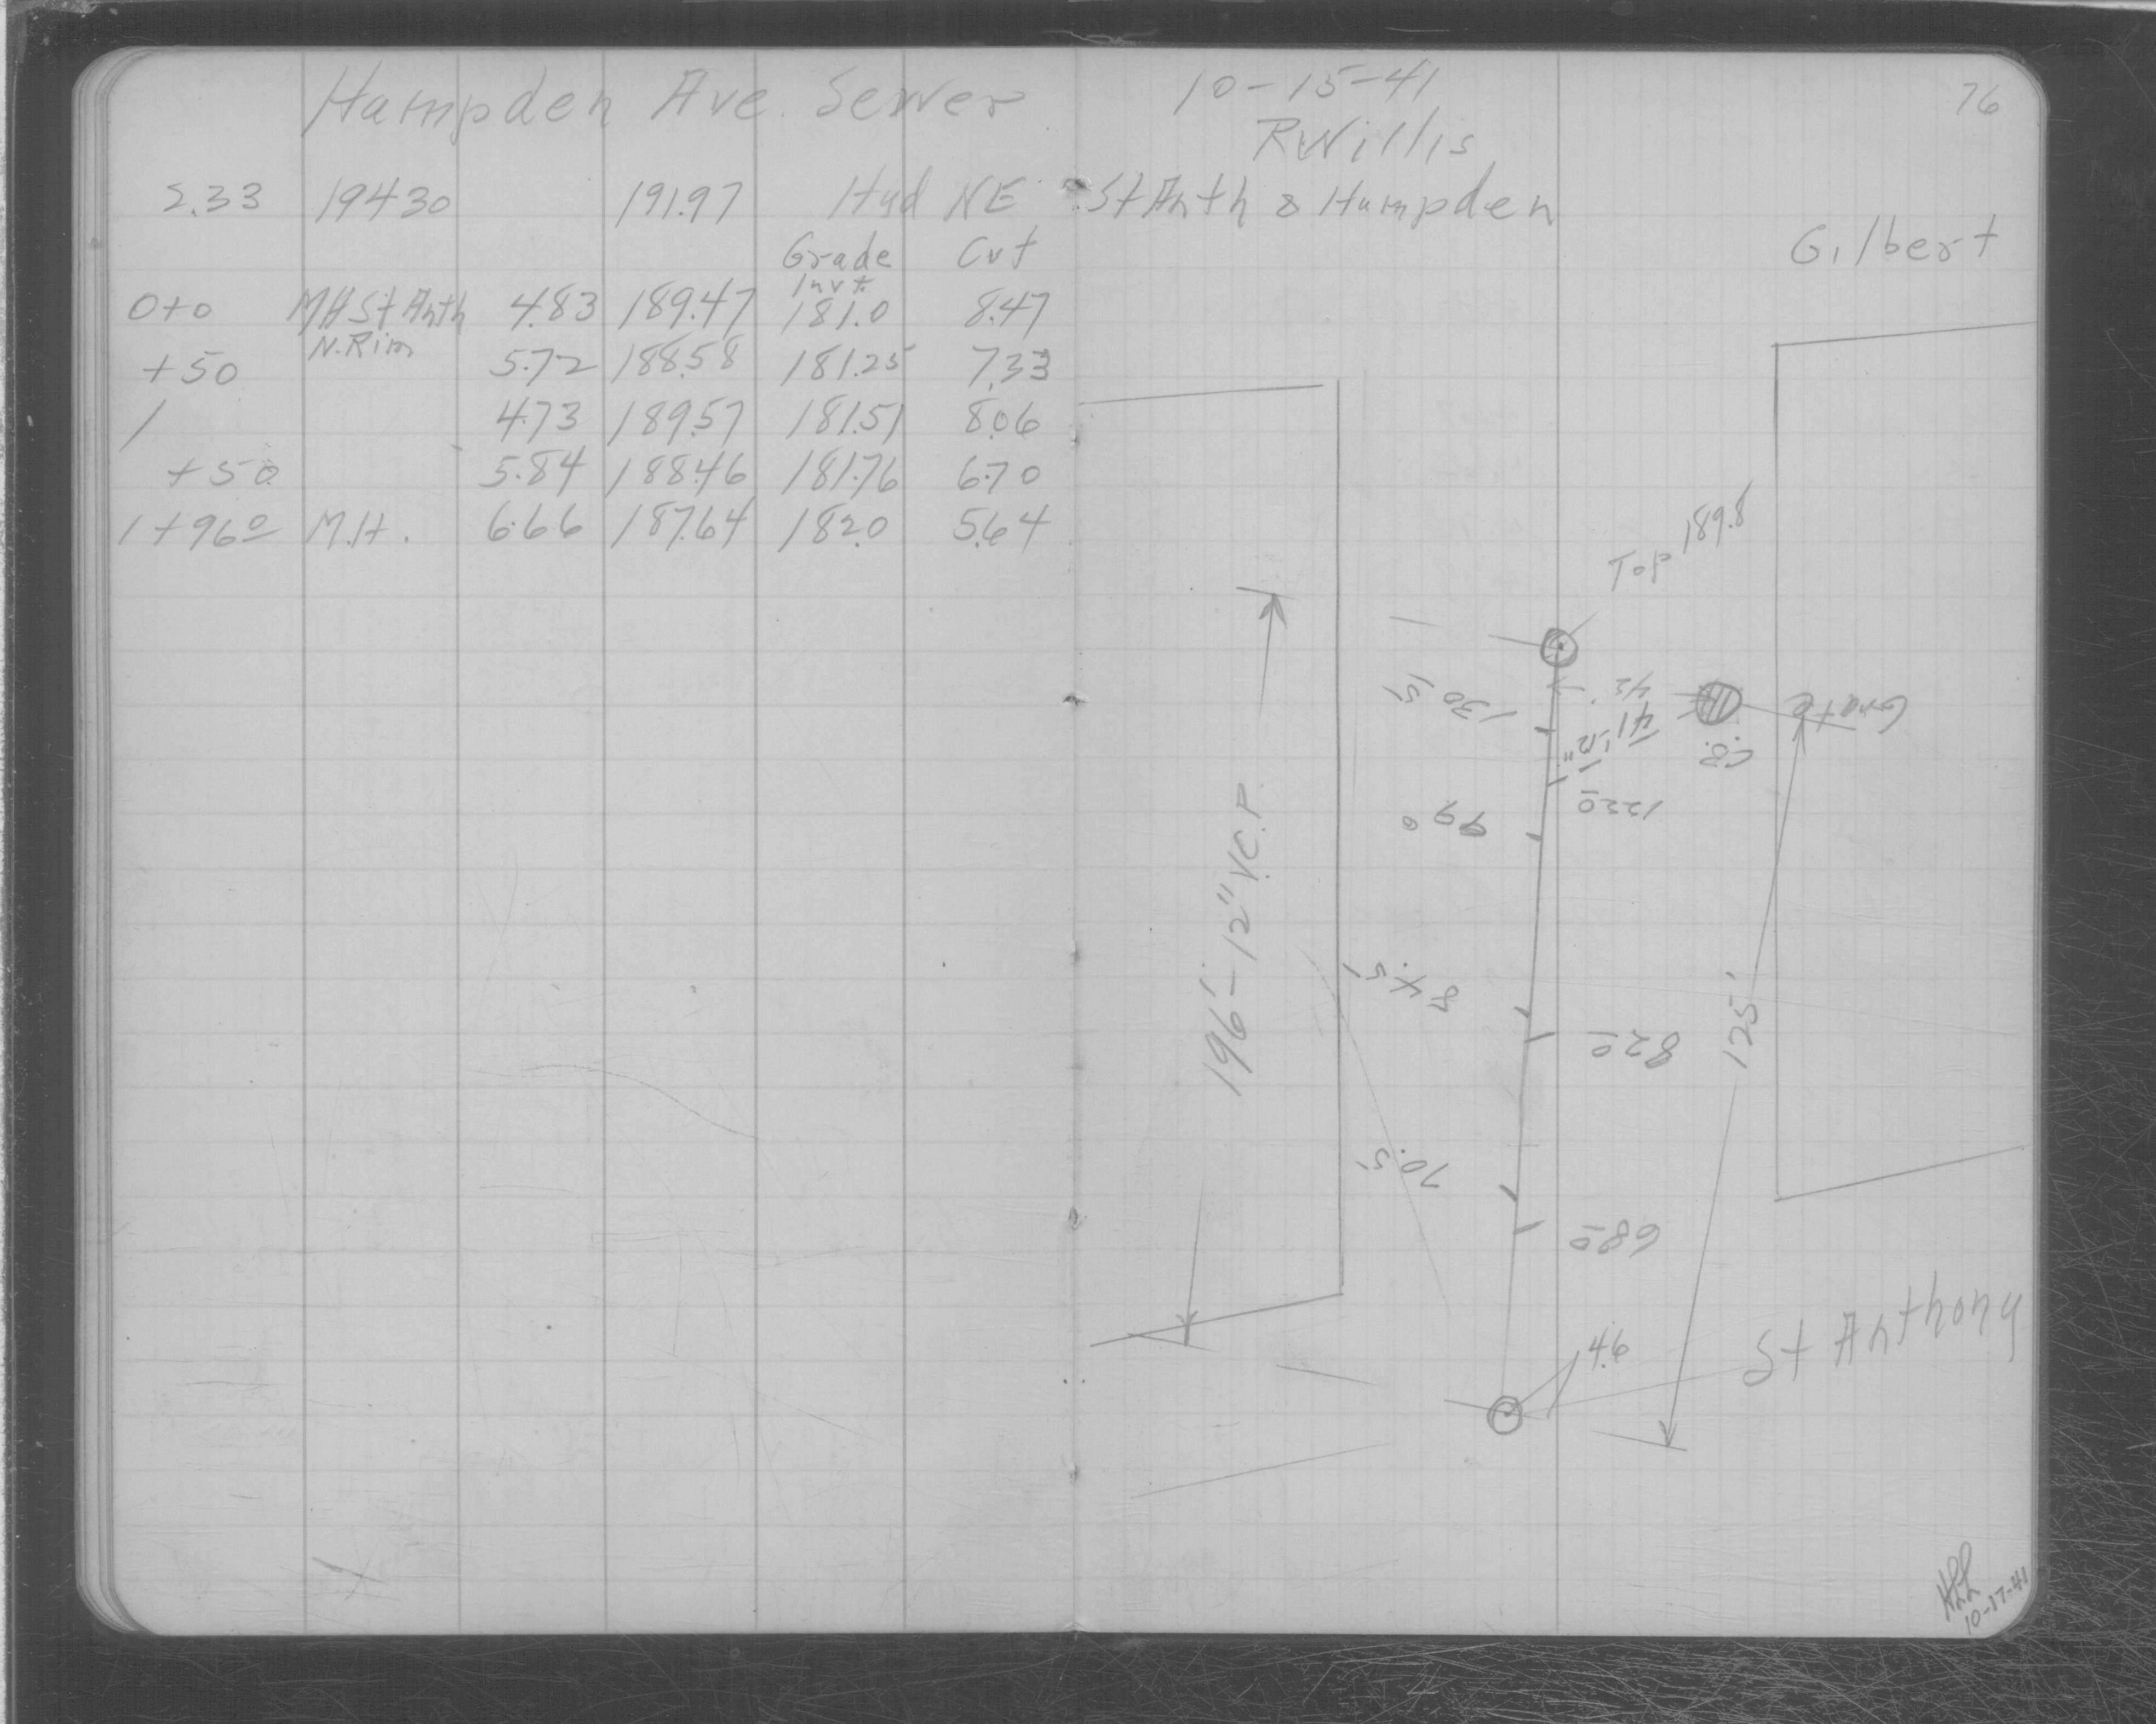 Hampden Ave. Sewer
2.33 194.30 191.97 Hyd NE
Grade Cut
Invt.
0+0 MH St Anth 4.83 189.47 181.0 8.47
N. Rim
+50 5.72 188.58 181.25 7.33
1 4.73 189.57 181.51 8.06
+50 5.84 188.46 181.76 6.70
1+96 0 M.H. 6.66 187.64 182.0 5.64
10-15-41
76
R Willis
St Anth & Hampden
Gilbert
Top 189.8
42
130.5
41'-12"
Grate
C.B.
122 0
99 0
196'-12" V.C.P.
84.5
82 0
125'
70.5
68 0
4.6
St Anthony
10-17-41